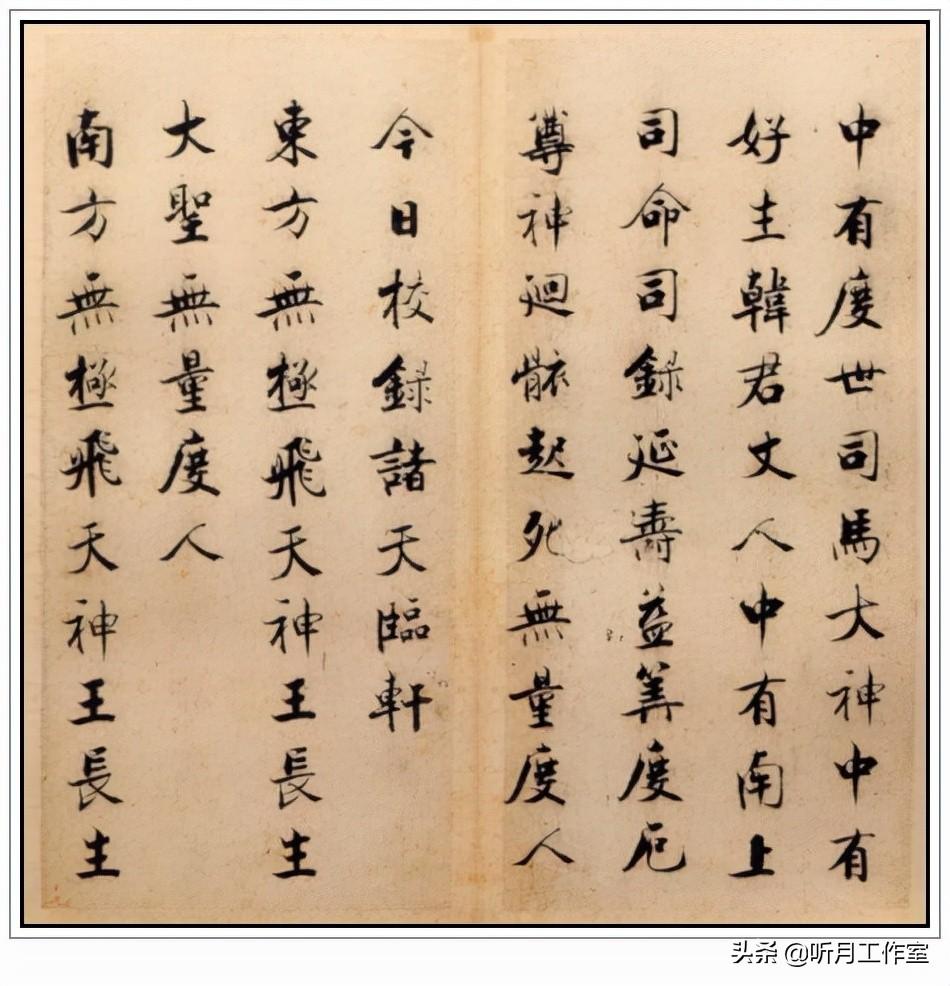 中有度世司馬大神中有
好生韓君丈人中有南上
司命司録延壽益筭度厄
尊神迴骸起死無量度人
今日校録諸天臨軒
東方無極飛天神王長生
大聖無量度人
南方無極飛天神王長生
头条 @听月工作室